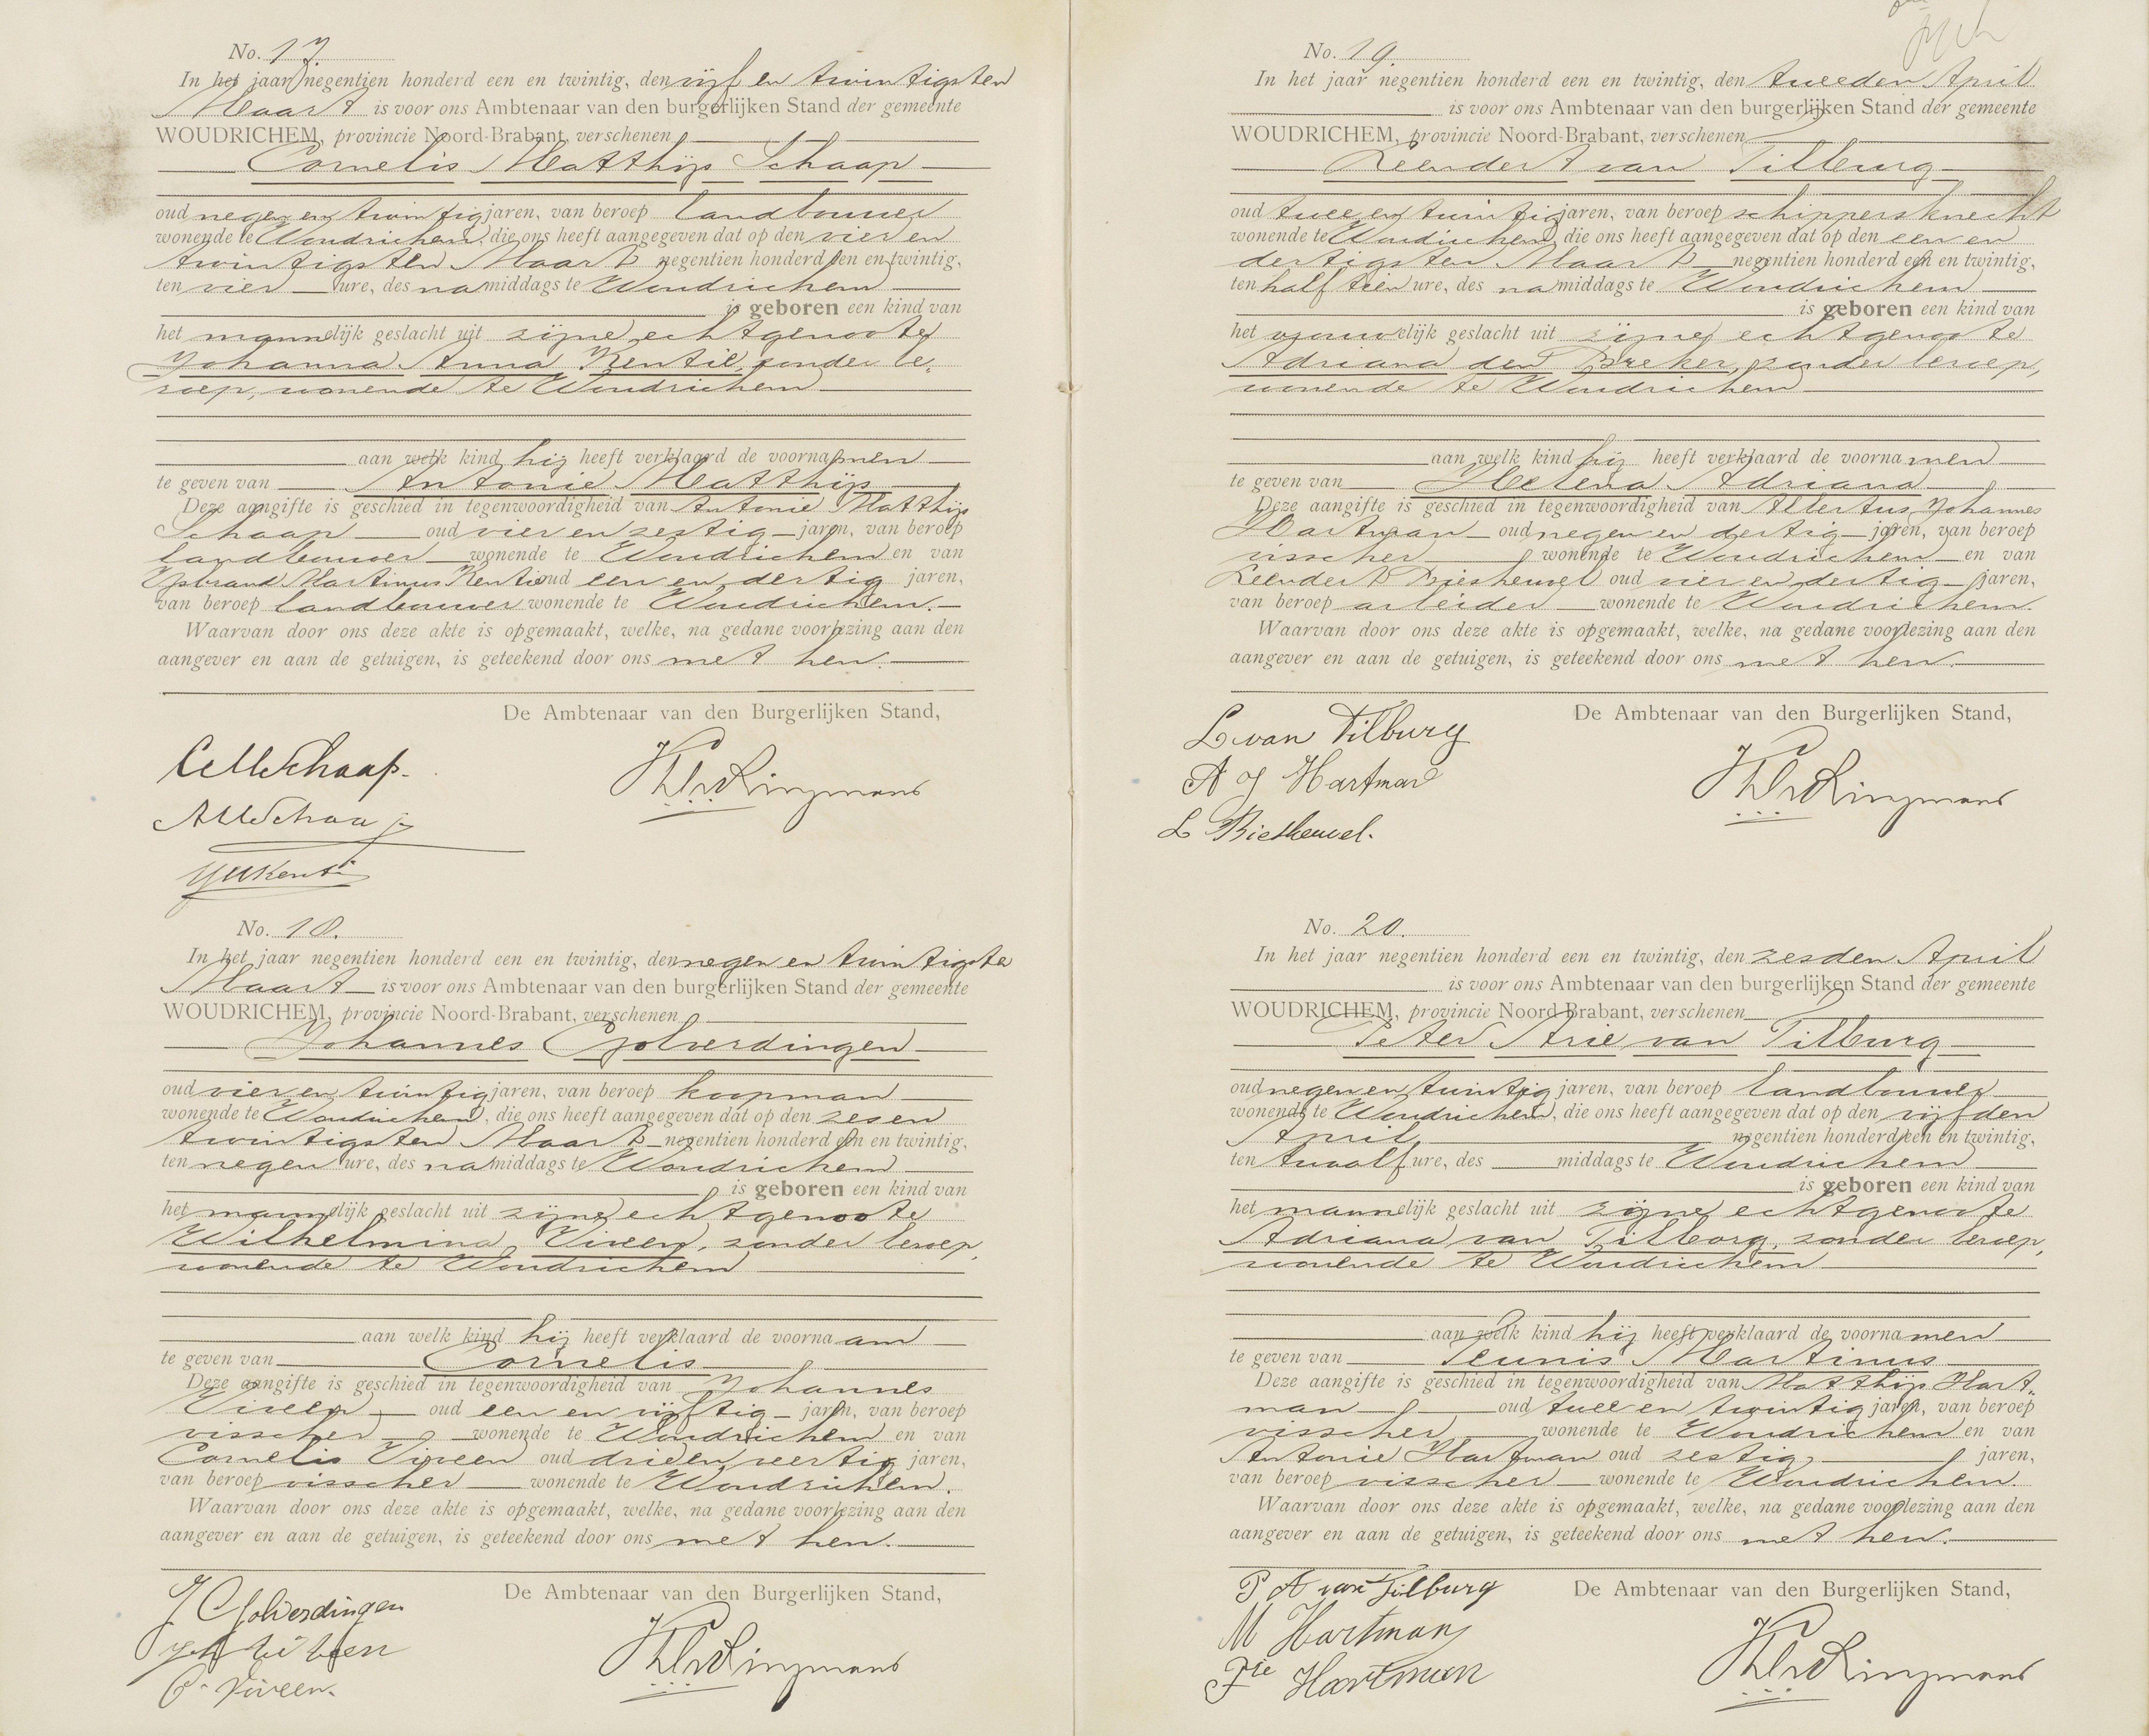 No. 17.
In het jaar negentien honderd een en twintig, den vijf en twintigsten
Maart is voor ons Ambtenaar van den burgerlijken Stand der gemeente
WOUDRICHEM, provincie Noord-Brabant, verschenen
Cornelis Matthijs Schaap
oud negen en twintig jaren, van beroep landbouwer
wonende te Woudrichem, die ons heeft aangegeven dat op den vier en
twintigsten Maart negentien honderd een en twintig,
ten vier ure, des namiddags te Woudrichem
is geboren een kind van
het mannelijk geslacht uit zijne echtgenoote
Johanna Anna Kentie, zonder be-
roep, wonende te Woudrichem
aan welk kind hij heeft verklaard de voornamen
te geven van Antonie Matthijs
Deze aangifte is geschied in tegenwoordigheid van Antonie Matthijs
Schaap oud vier en zestig jaren, van beroep
landbouwer wonende te Woudrichem en van
Ysbrand Martinus Kentie oud een en dertig jaren,
van beroep landbouwer wonende te Woudrichem.
Waarvan door ons deze akte is opgemaakt, welke, na gedane voorlezing aan den
aangever en aan de getuigen, is geteekend door ons met hen.
De Ambtenaar van den Burgerlijken Stand,
C M Schaap.
A M Schaap
Y M Kentie
No. 18.
In het jaar negentien honderd een en twintig, den negen en twintigste
Maart is voor ons Ambtenaar van den burgerlijken Stand der gemeente
WOUDRICHEM, provincie Noord-Brabant, verschenen
Johannes Golverdingen
oud vier en twintig jaren, van beroep koopman
wonende te Woudrichem, die ons heeft aangegeven dat op den zes en
twintigsten Maart negentien honderd een en twintig,
ten negen ure, des namiddags te Woudrichem
is geboren een kind van
het mannelijk geslacht uit zijne echtgenoote
Wilhelmina Viveen, zonder beroep,
wonende te Woudrichem
aan welk kind hij heeft verklaard de voornaam
te geven van Cornelis
Deze aangifte is geschied in tegenwoordigheid van Johannes
Viveen oud een en vijftig jaren, van beroep
visscher wonende te Woudrichem en van
Cornelis Viveen oud drie en veertig jaren,
van beroep visscher wonende te Woudrichem.
Waarvan door ons deze akte is opgemaakt, welke, na gedane voorlezing aan den
aangever en aan de getuigen, is geteekend door ons met hen.
De Ambtenaar van den Burgerlijken Stand,
J Golverdingen
Viveen
C. Viveen.
No. 19.
In het jaar negentien honderd een en twintig, den tweeden April
is voor ons Ambtenaar van den burgerlijken Stand der gemeente
WOUDRICHEM, provincie Noord-Brabant, verschenen
Leendert van Tilburg
oud twee en twintig jaren, van beroep schippersknecht
wonende te Woudrichem, die ons heeft aangegeven dat op den een en
dertigsten Maart negentien honderd een en twintig,
ten half tien ure, des namiddags te Woudrichem
is geboren een kind van
het vrouwelijk geslacht uit zijne echtgenoote
Adriana den Breker, zonder beroep,
wonende te Woudrichem
aan welk kind hij heeft verklaard de voornamen
te geven van Helena Adriana
Deze aangifte is geschied in tegenwoordigheid van Albertus Johannes
Hartman oud negen en dertig jaren, van beroep
visscher wonende te Woudrichem en van
Leendert Biesheuvel oud vier en dertig jaren,
van beroep arbeider wonende te Woudrichem.
Waarvan door ons deze akte is opgemaakt, welke, na gedane voorlezing aan den
aangever en aan de getuigen, is geteekend door ons met hen.
De Ambtenaar van den Burgerlijken Stand,
L van Tilburg
A J Hartman
L Biesheuvel.
No. 20.
In het jaar negentien honderd een en twintig, den zesden April
is voor ons Ambtenaar van den burgerlijken Stand der gemeente
WOUDRICHEM, provincie Noord-Brabant, verschenen
Peter Arie van Tilburg
oud negen en twintig jaren, van beroep landbouwer
wonende te Woudrichem, die ons heeft aangegeven dat op den vijfden
April negentien honderd een en twintig,
ten twaalf ure, des middags te Woudrichem
is geboren een kind van
het mannelijk geslacht uit zijne echtgenoote
Adriana van Tilborg, zonder beroep,
wonende te Woudrichem
aan welk kind hij heeft verklaard de voornamen
te geven van Teunis Martinus
Deze aangifte is geschied in tegenwoordigheid van Matthijs Hart-
man oud twee en twintig jaren, van beroep
visscher wonende te Woudrichem en van
Antonie Hartman oud zestig jaren,
van beroep visscher wonende te Woudrichem.
Waarvan door ons deze akte is opgemaakt, welke, na gedane voorlezing aan den
aangever en aan de getuigen, is geteekend door ons met hen.
De Ambtenaar van den Burgerlijken Stand,
P A van Tilburg
M Hartman
Hartman